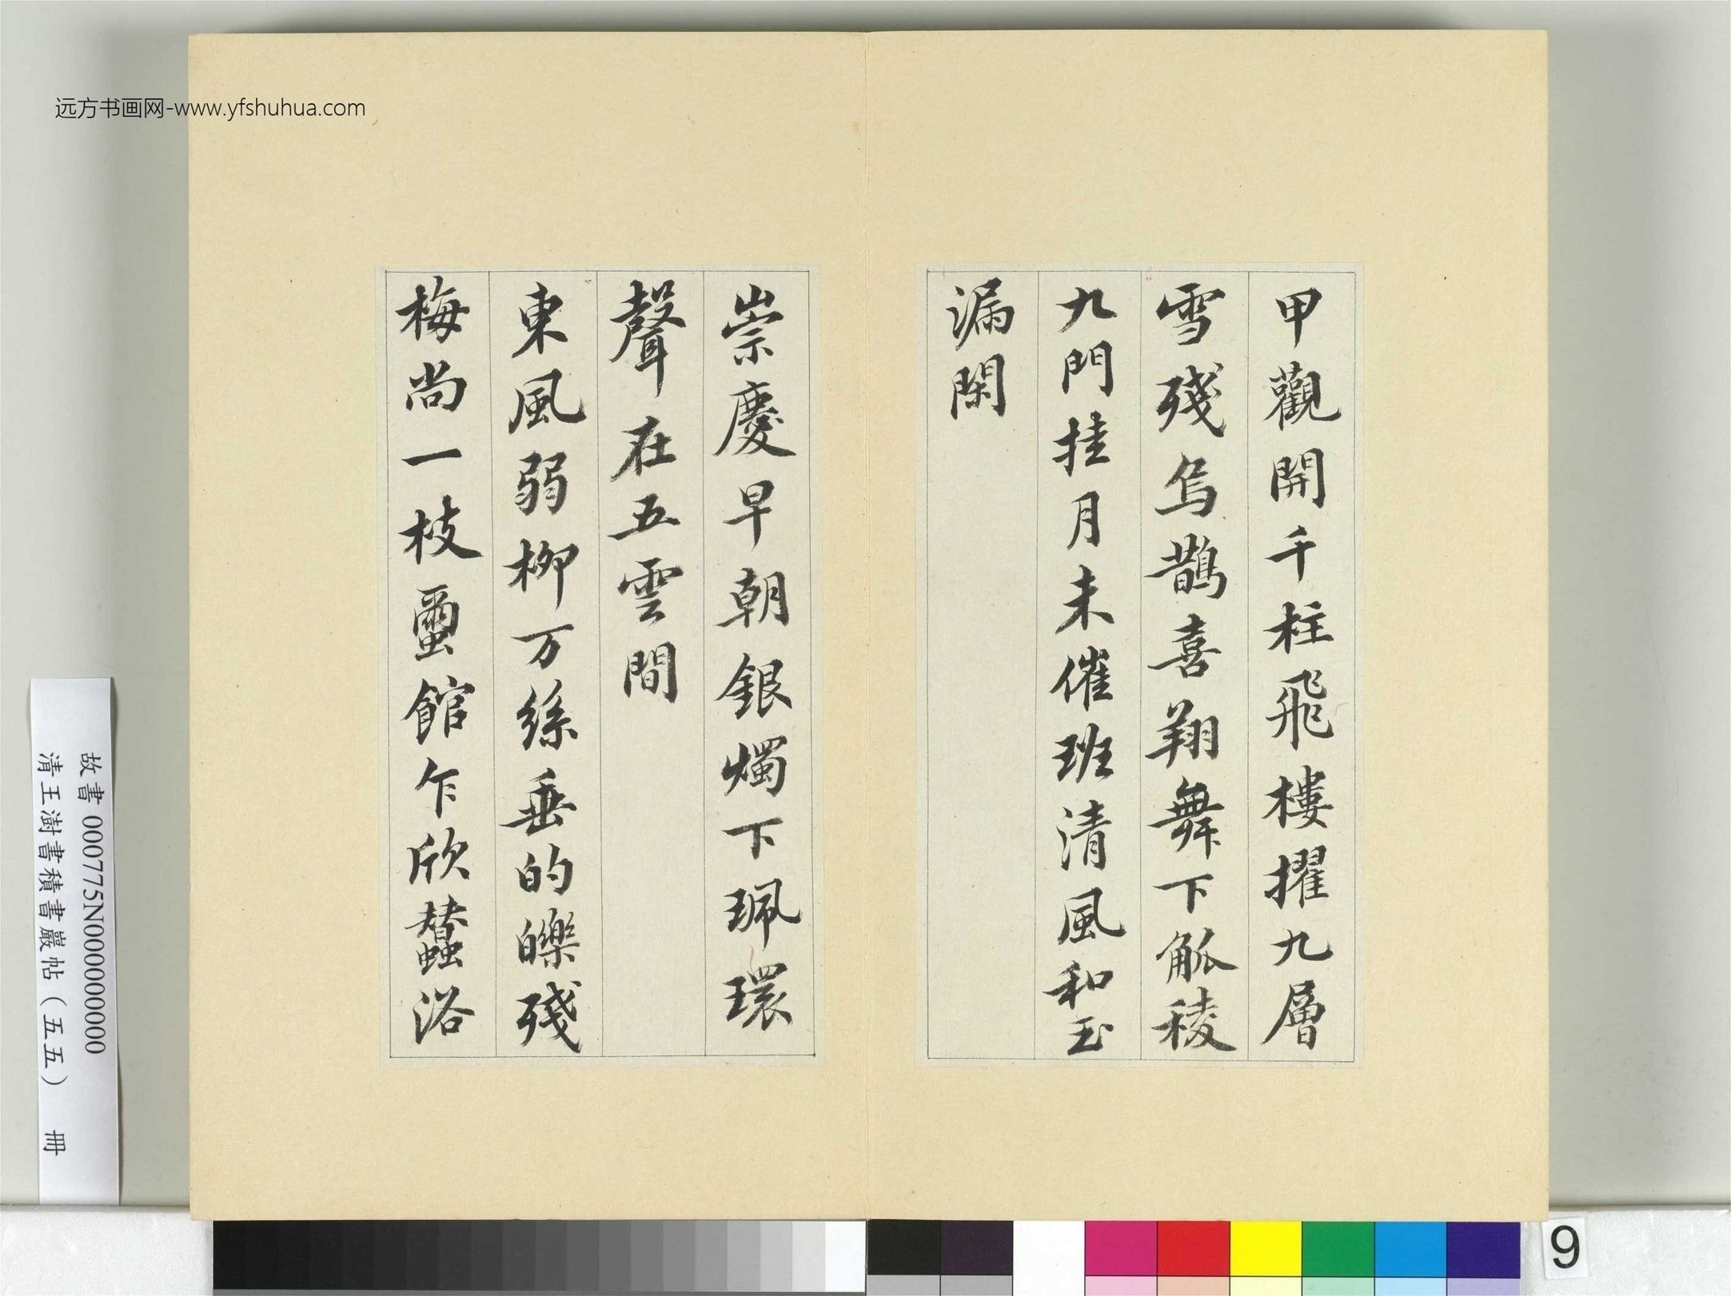 远方书画网-www.yfshuhua.com
甲觀開千柱飛樓擢九層
雪殘烏鵲喜翔舞下觚稜
九門挂月未催班清風和玉
漏閑
崇慶早朝銀燭下珮環
聲在五雲間
東風弱柳万絲垂的皪殘
梅尚一枝蠒館乍欣蠶浴
故書 000775N000000000
清王澍書積書巖帖(五五) 冊
9